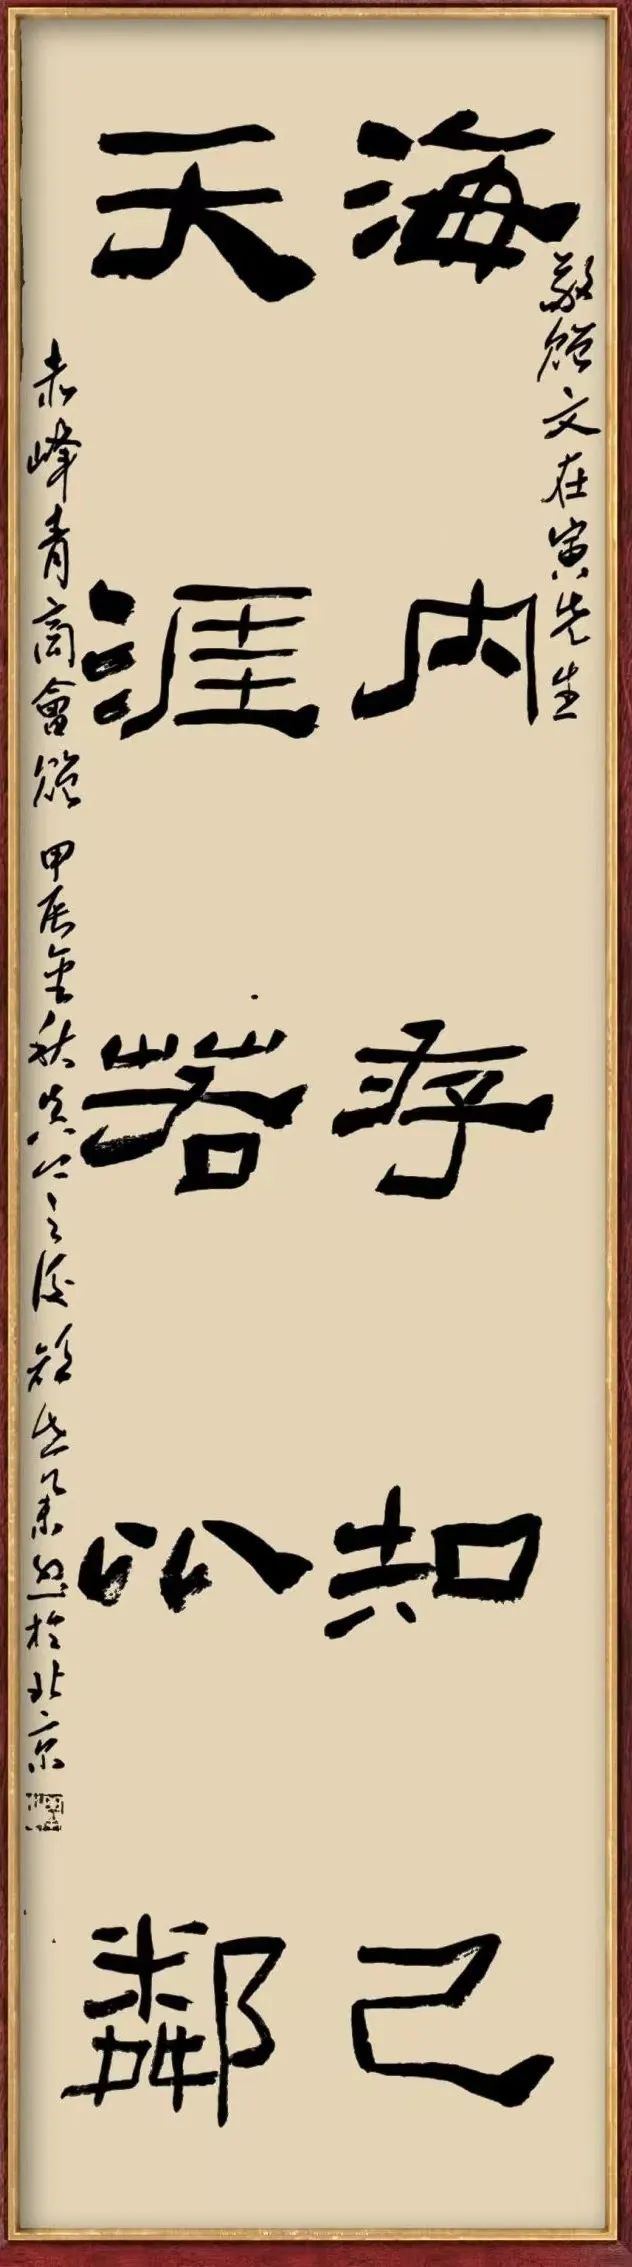 敬贈文在寅先生
海内存知己
天涯若比鄰
赤峰青商會贈 甲辰金秋 於北京